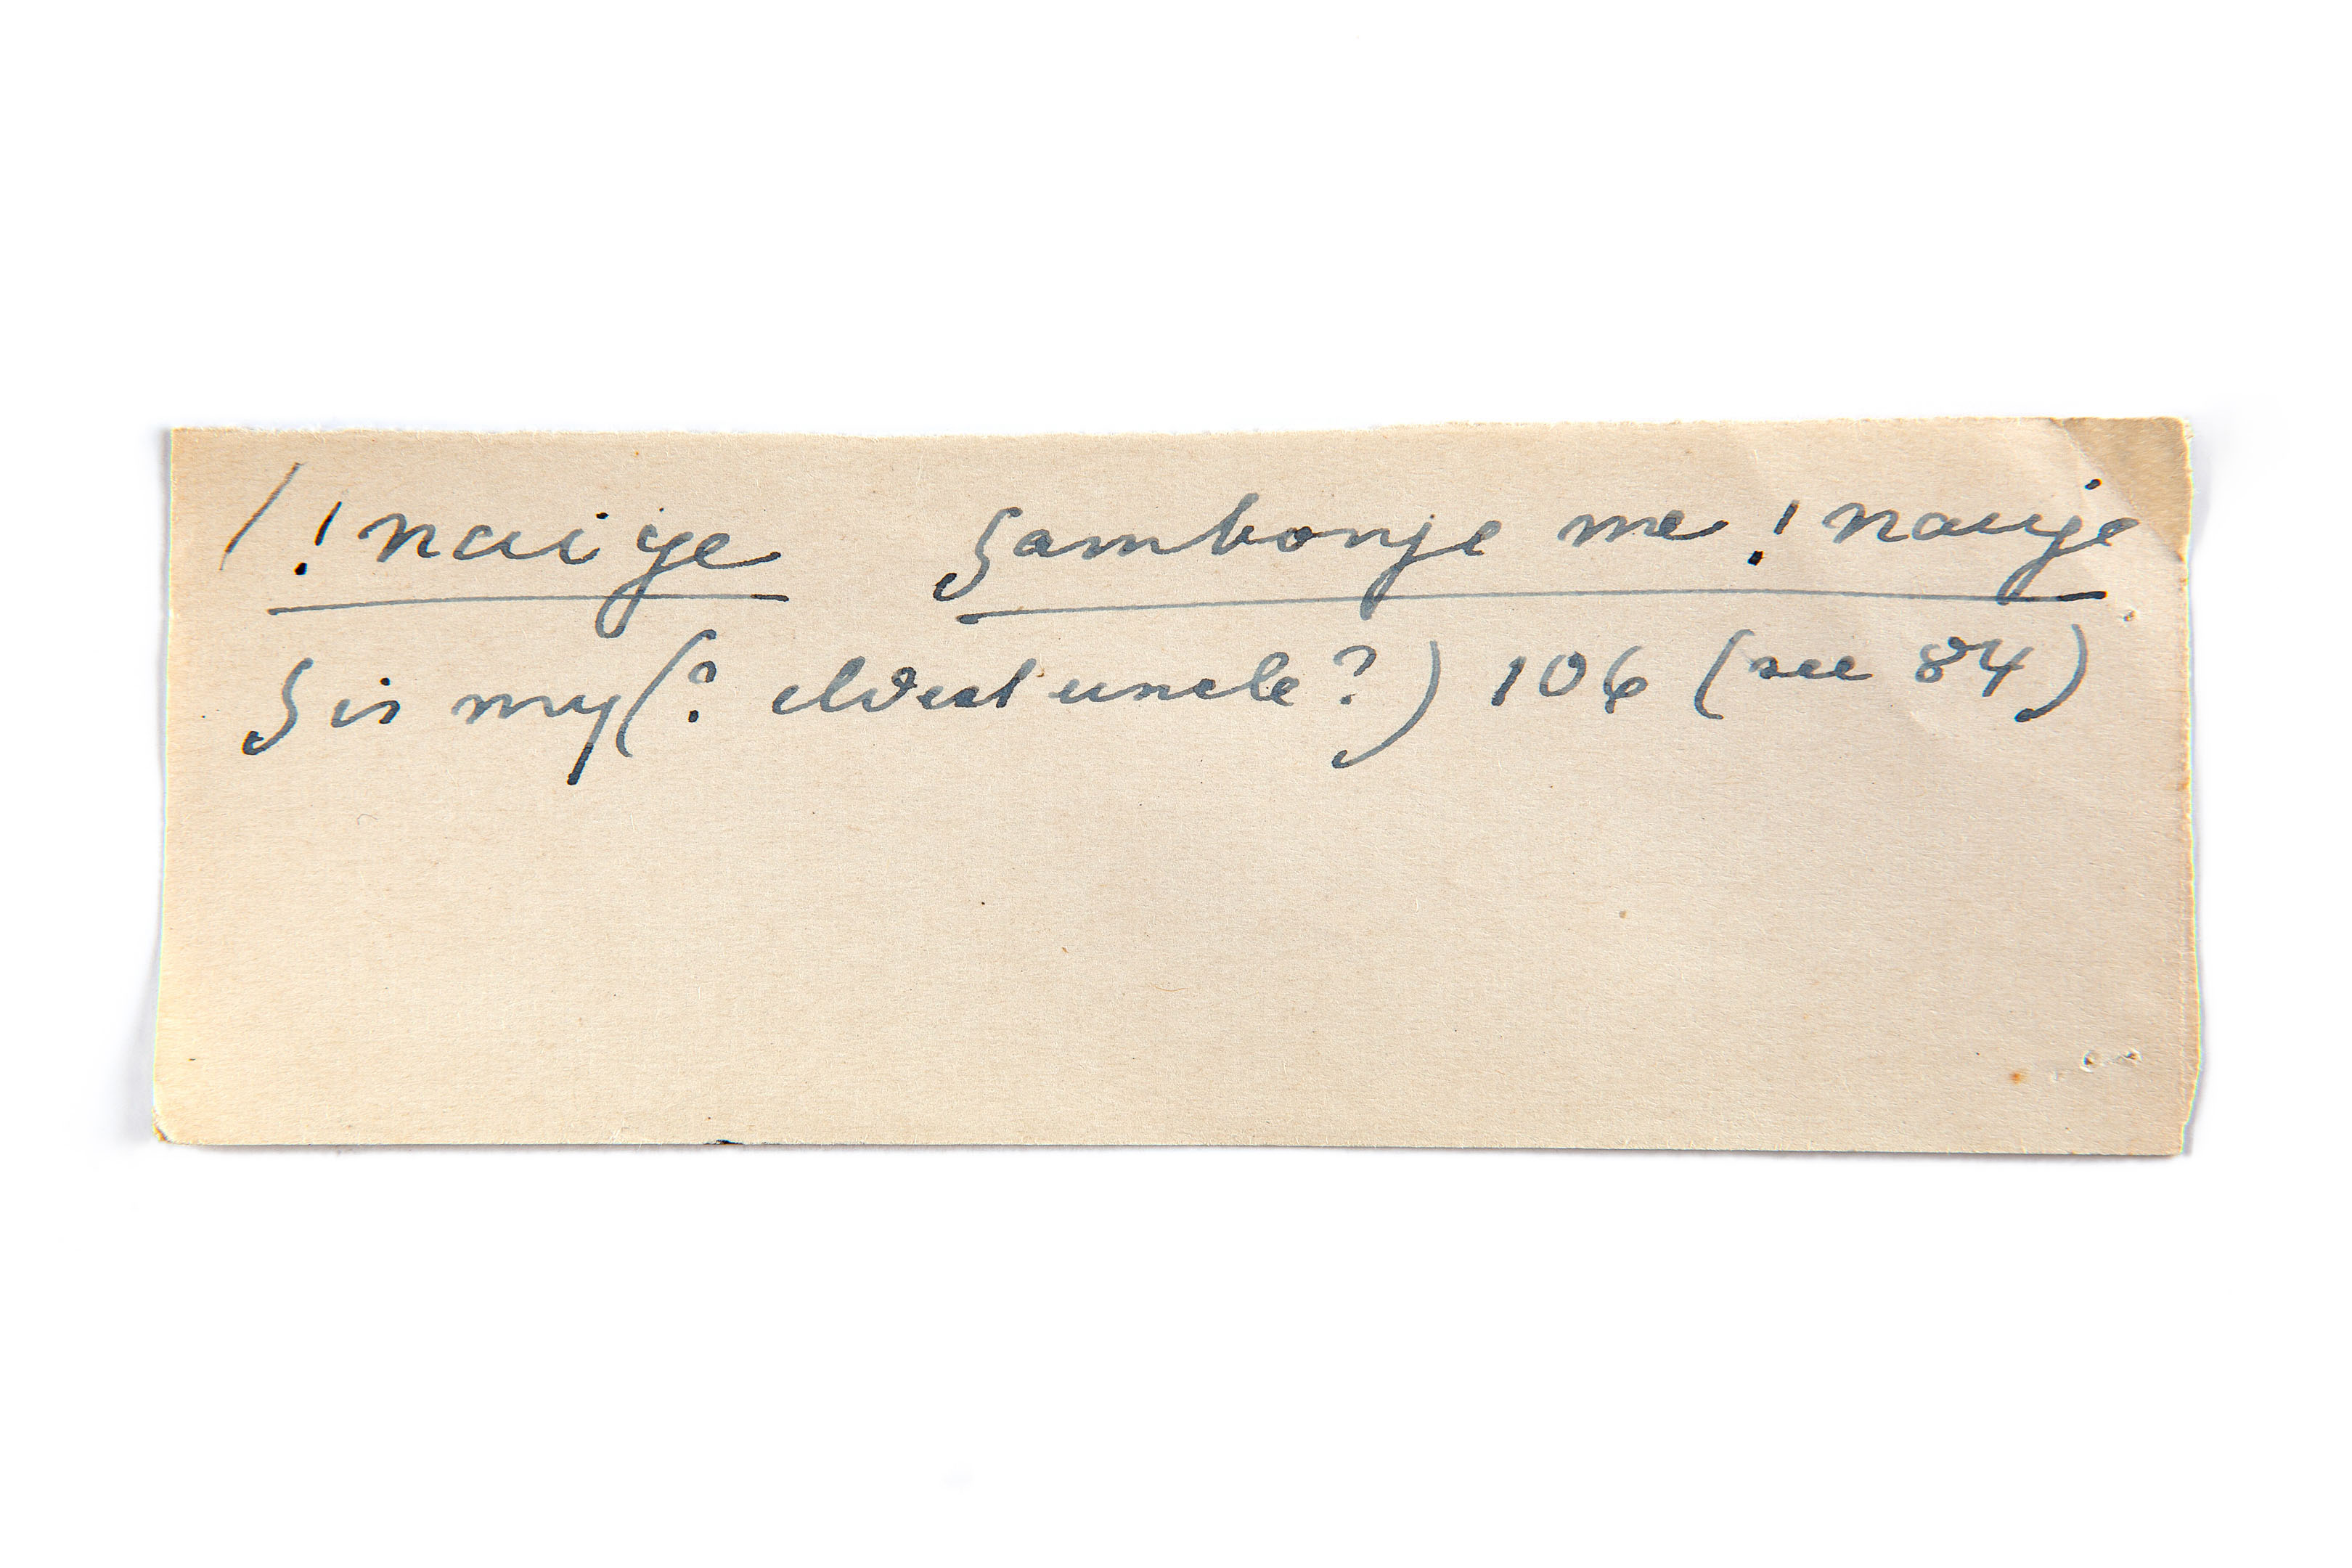 / !naiye Sambonje me !naije
S is my (? eldest uncle?) 106 (see 84)